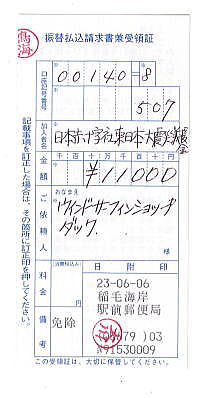 振替払込請求書兼受領証
口座記号番号
00140=8
507
加入者名
日本赤十字社東日本大震災義援金
金額
千 百 十 万 千 百 十 円
¥11000
ご依頼人
おなまえ
ウインドサーフィンショップ
ダック
様
料金
(消費税込み)
備考
免除
日附印
23-06-06
稲毛海岸
駅前郵便局
(0679)03
N91530009
この受領証は、大切に保管してください。
記載事項を訂正した場合は、その箇所に訂正印を押してください。